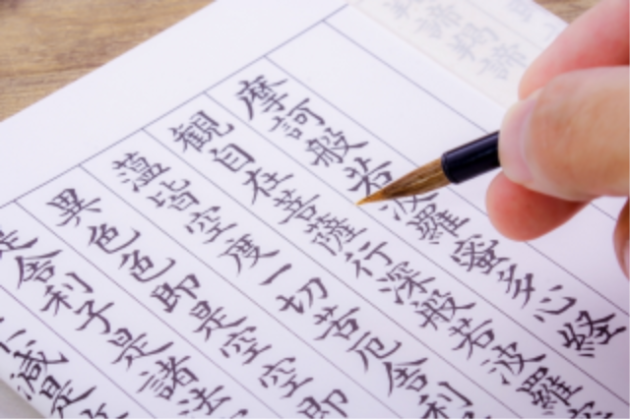 摩訶般若波羅蜜多心経
観自在菩薩行深般若波羅
蘊皆空度一切苦厄舎利
異色色即是空空即
是舎利子是諸法
減是